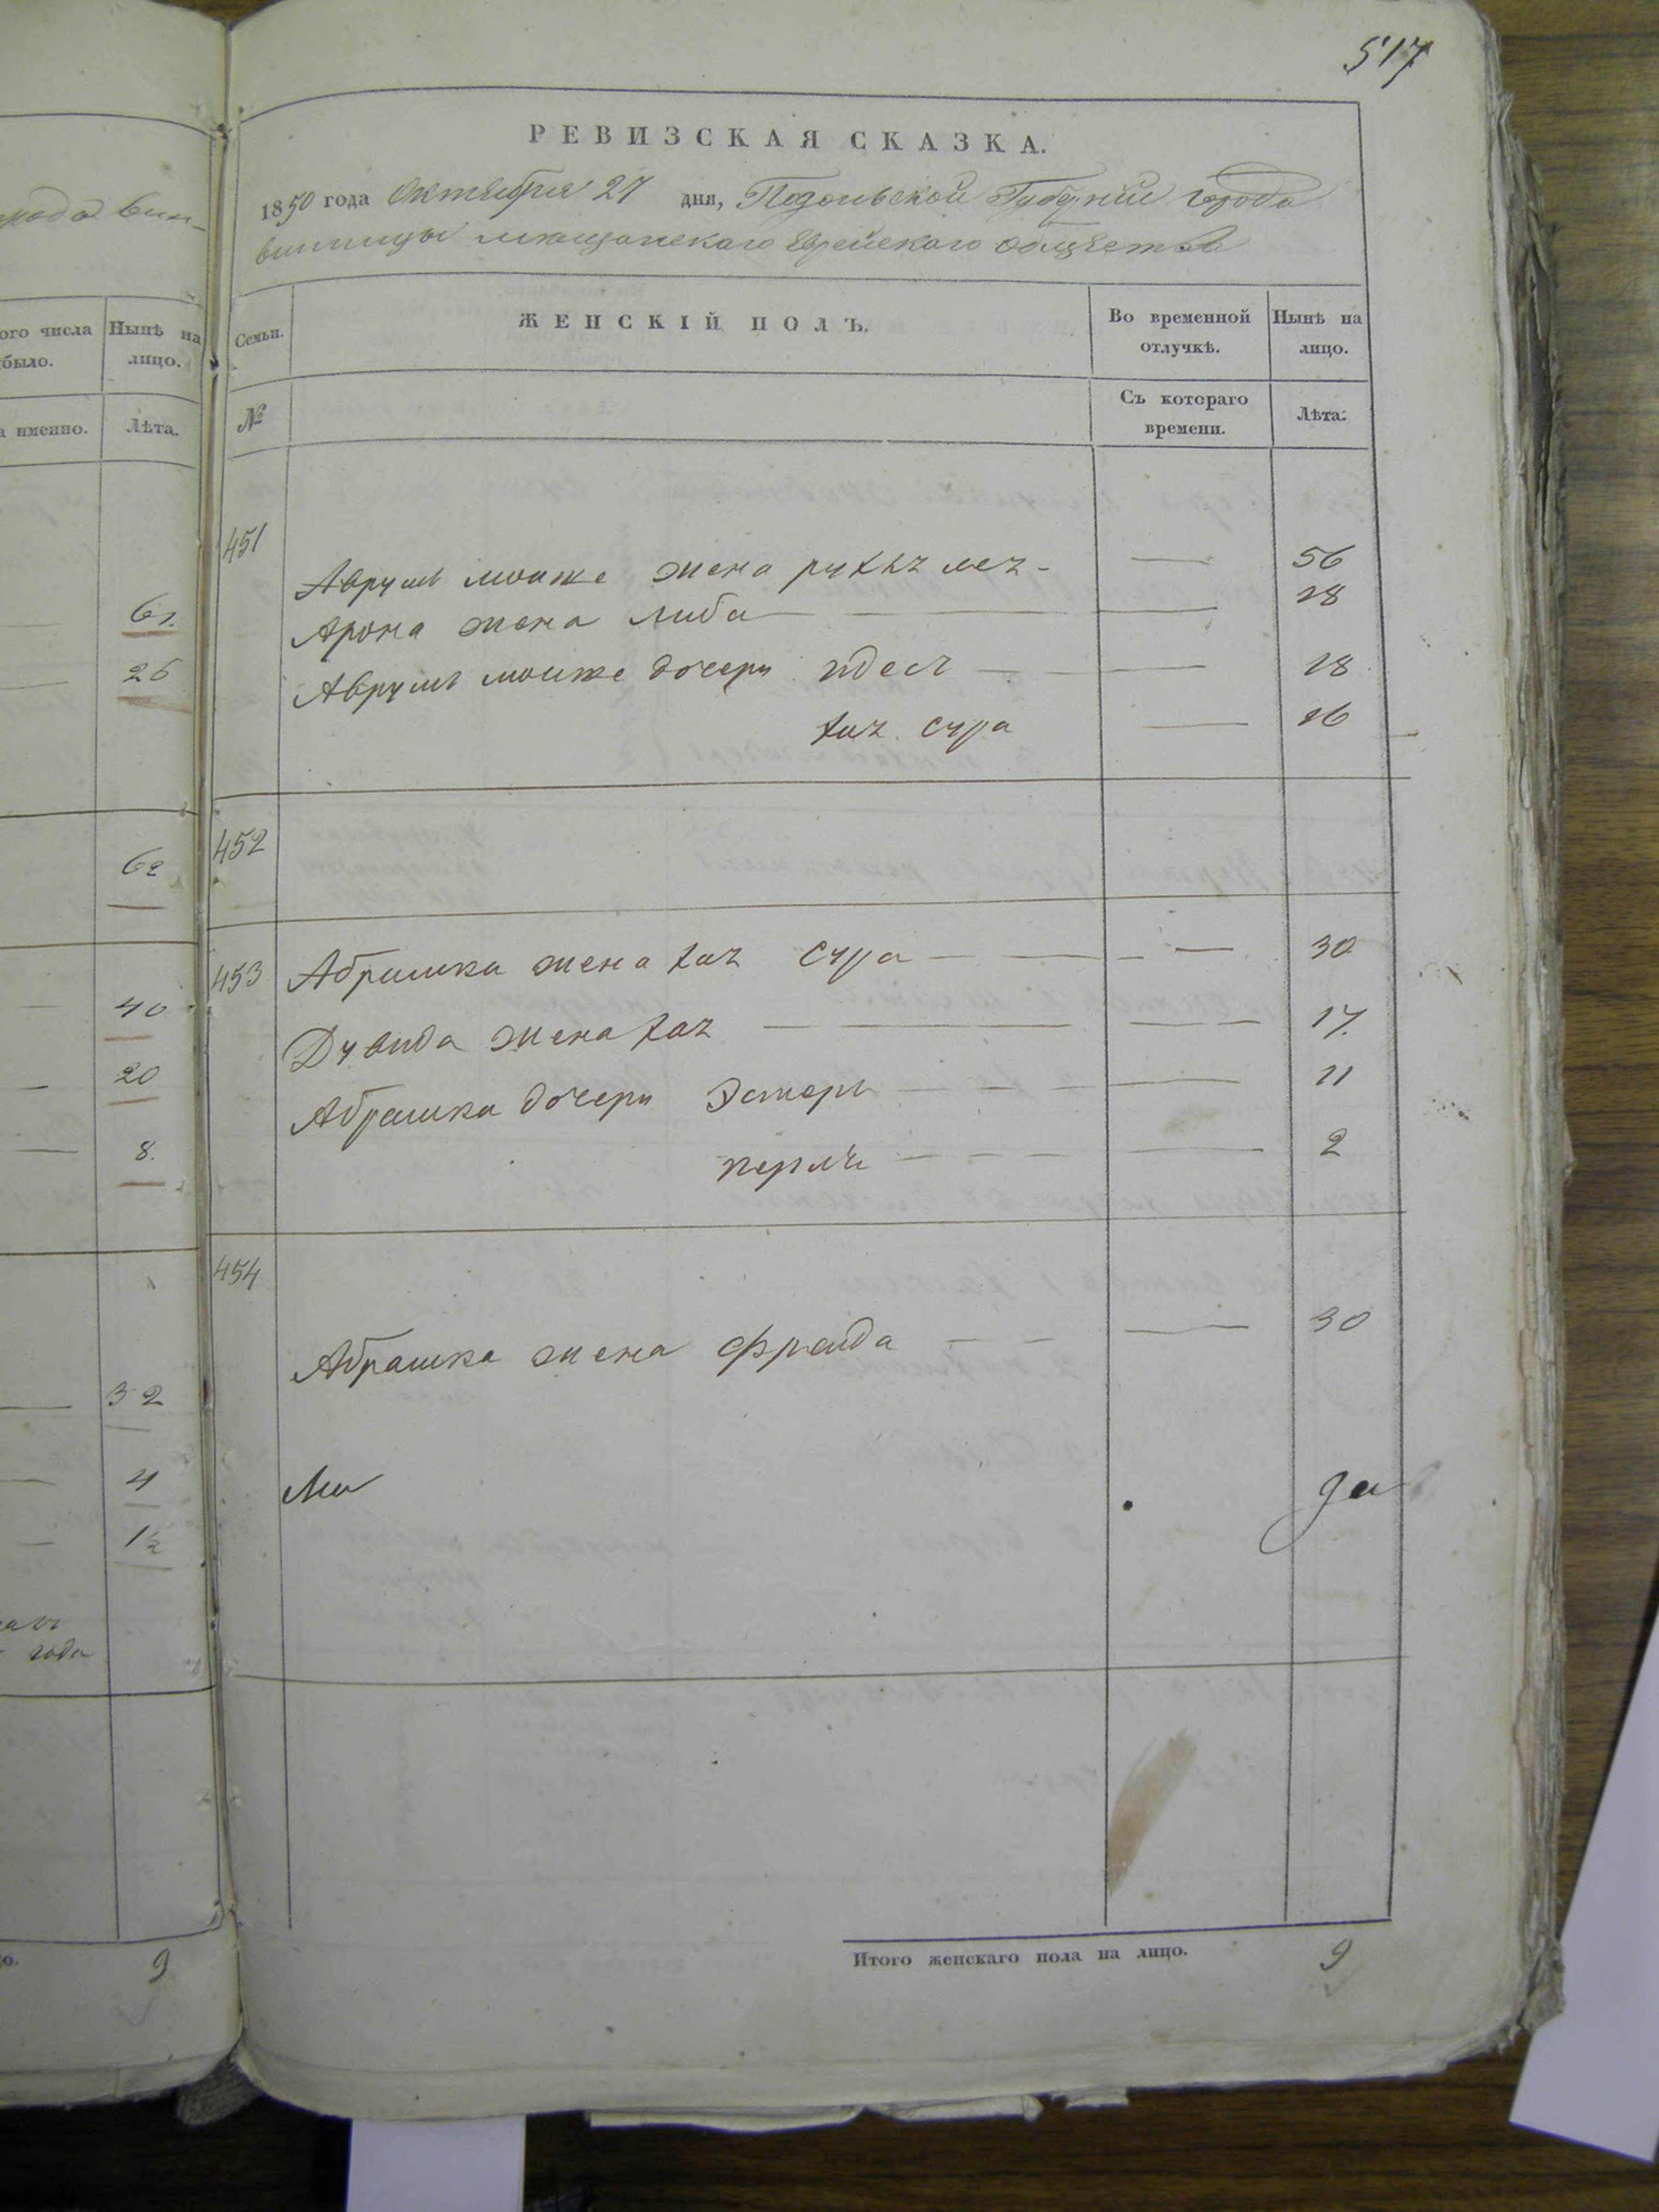 517
РЕВИЗСКАЯ СКАЗКА.
1850 года Октября 27 дня, Подольской Губерніи города
винницы мещанскаго Еврейскаго общества
Семьи. ЖЕНСКІЙ ПОЛЪ. Во временной отлучкѣ. Нынѣ на лицо.
№ Съ котораго времени. Лѣта.
451
Аврумъ мошке жена рухль 56
Арона жена либа 28
Аврумъ мошке дочери идесъ 18
хая сура 16
452
453 Абрашка жена хая сура 30
Дувида жена хая 17.
Абрашка дочери Эстеръ 11
перля 2
454
Абрашка жена фрейда 30
да
Итого женскаго пола на лицо. 9
ого числа было. Нынѣ на лицо.
а именно. Лѣта.
61.
26
62
40
20
8.
32
4
1½
года
9